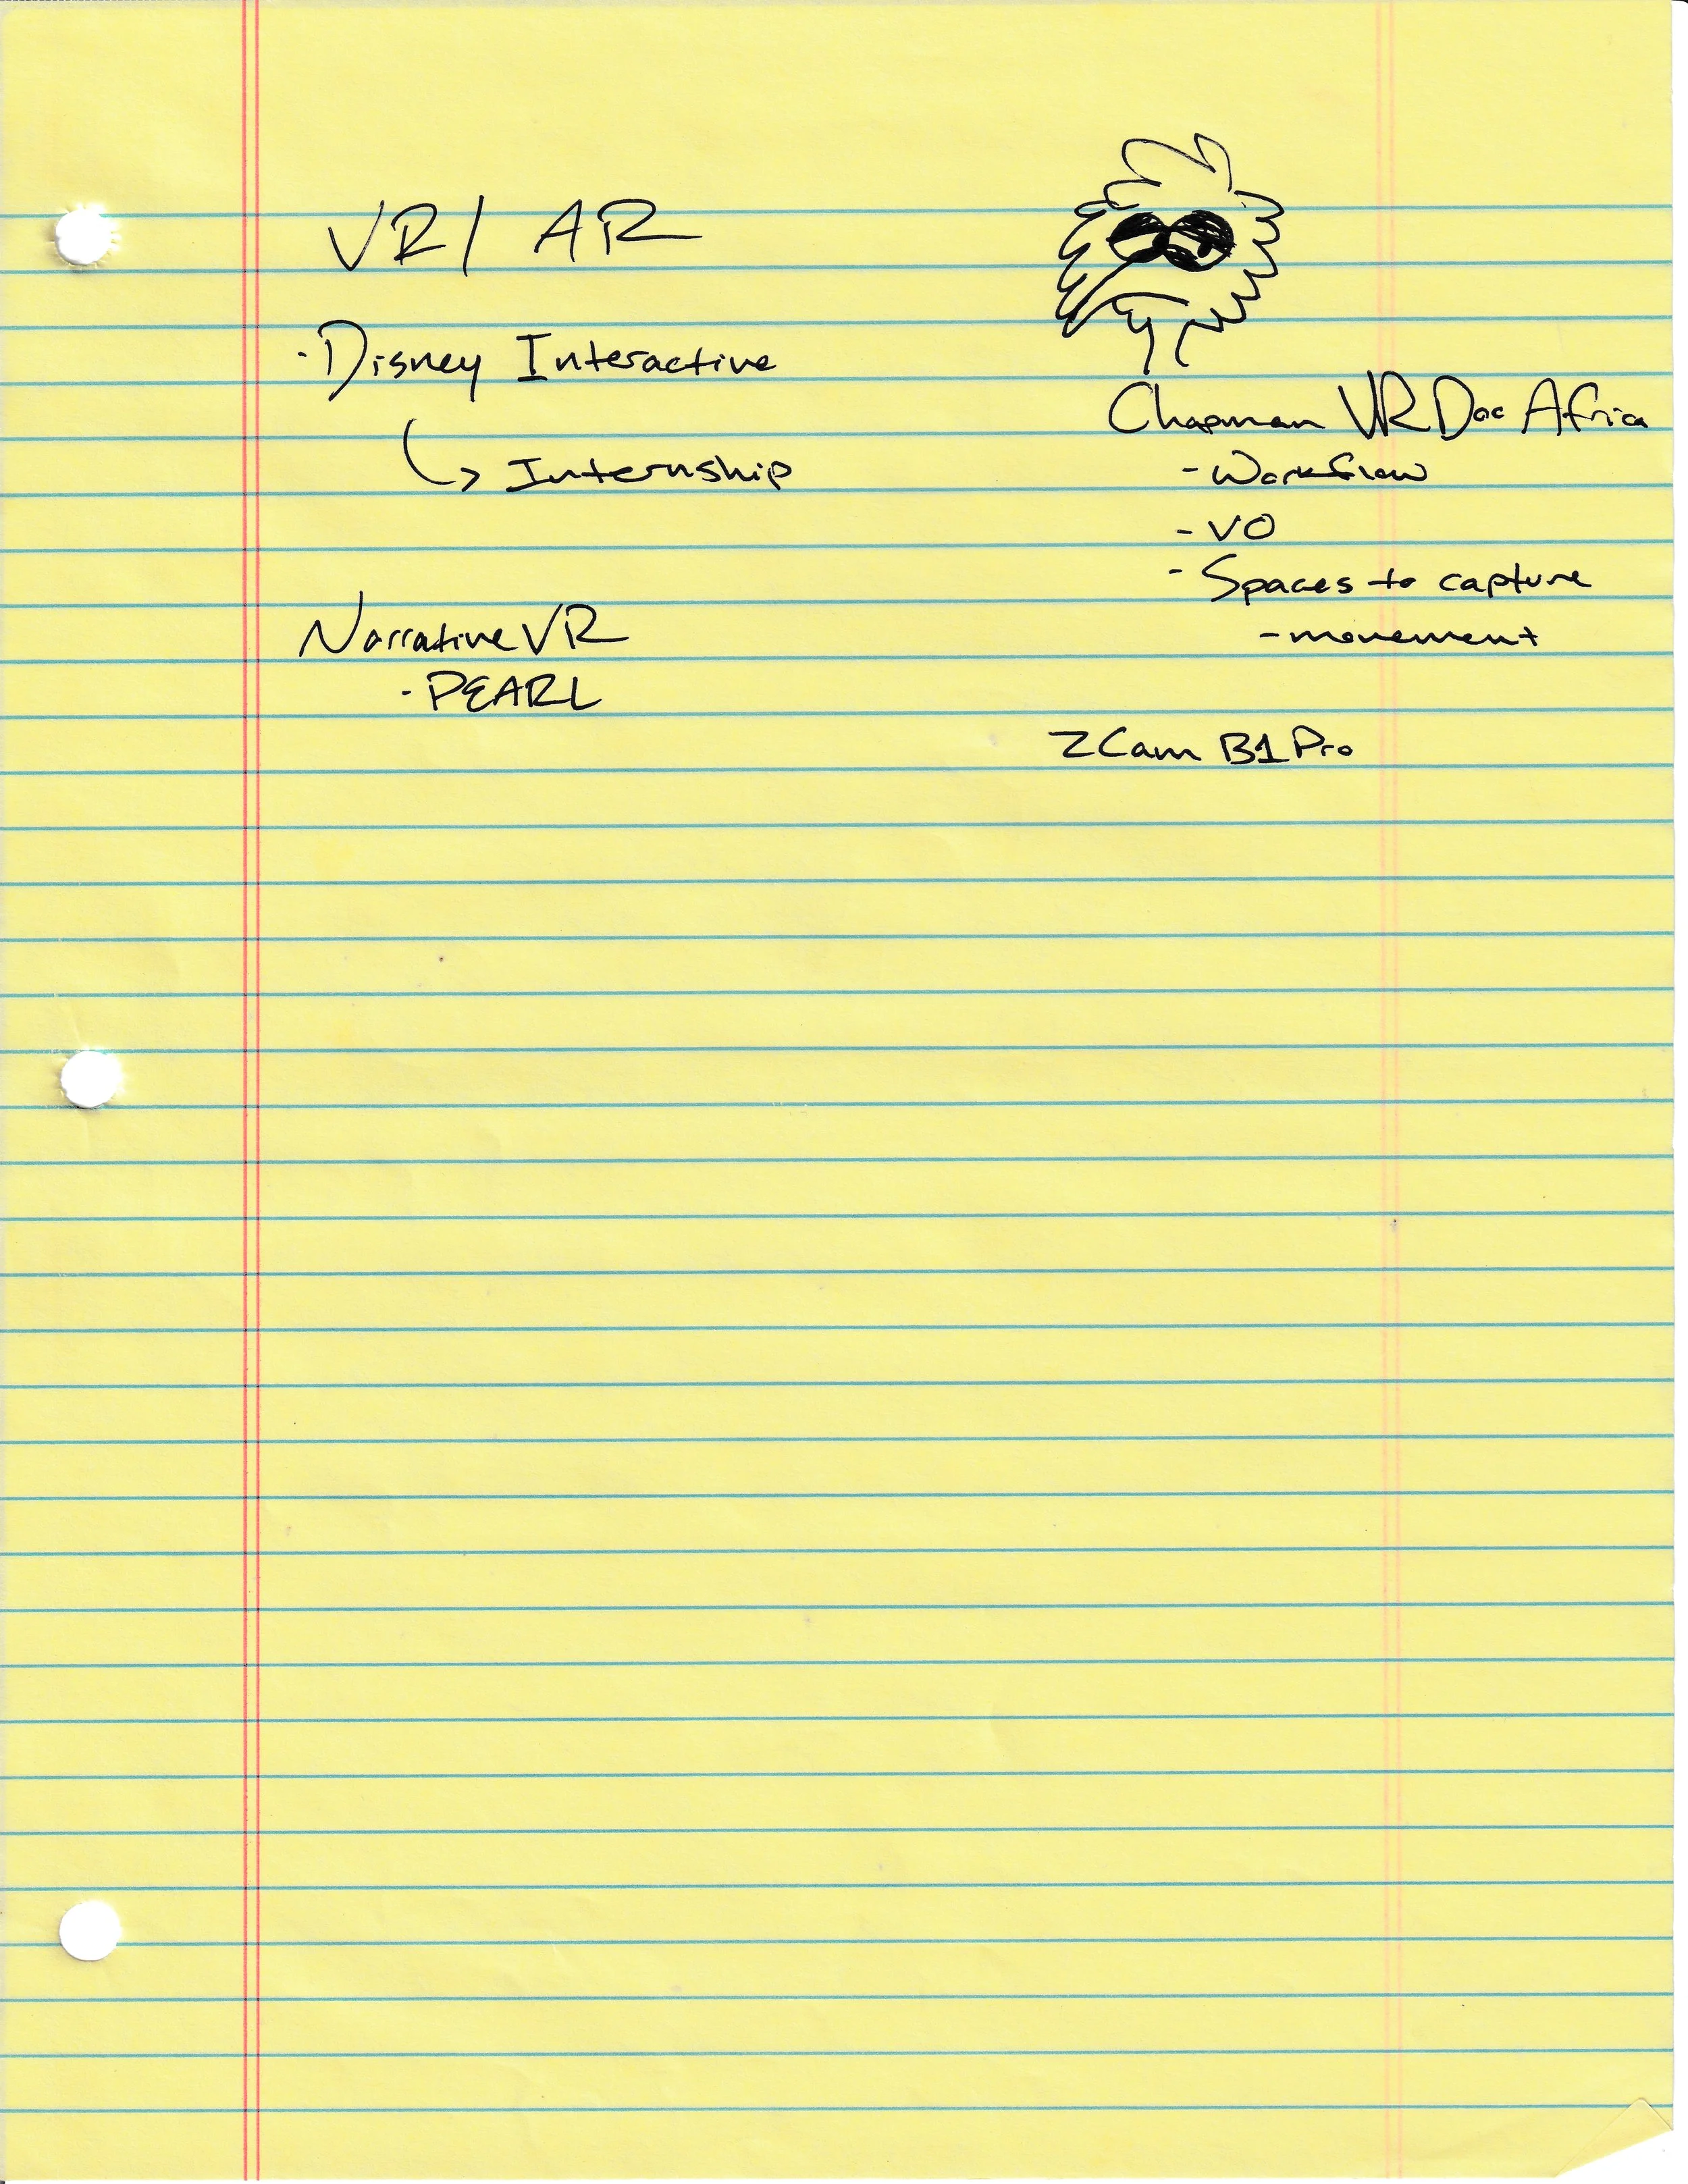 VR/ AR
· Disney Interactive
↳ Internship
Narrative VR
· PEARL
Chapman VR Doc Africa
- Workflow
- VO
- Spaces to capture
- movement
ZCam B1 Pro